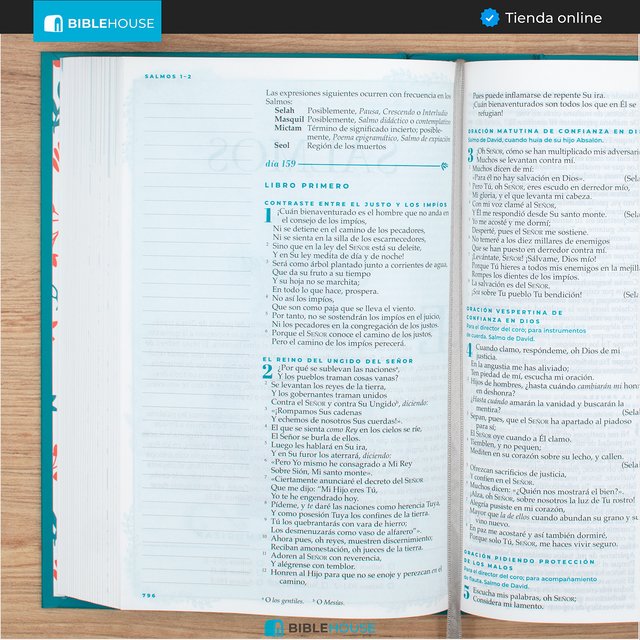 BIBLEHOUSE
Tienda online
SALMOS 1–2
Las expresiones siguientes ocurren con frecuencia en los
Salmos:
Selah Posiblemente, Pausa, Crescendo o Interludio
Masquil Posiblemente, Salmo didáctico o contemplativo
Mictam Término de significado incierto; posible-
mente, Poema epigramático, Salmo de expiación
Seol Región de los muertos
día 159
LIBRO PRIMERO
CONTRASTE ENTRE EL JUSTO Y LOS IMPÍOS
1 ¡Cuán bienaventurado es el hombre que no anda en
el consejo de los impíos,
Ni se detiene en el camino de los pecadores,
Ni se sienta en la silla de los escarnecedores,
2 Sino que en la ley del SEÑOR está su deleite,
Y en Su ley medita de día y de noche!
3 Será como árbol plantado junto a corrientes de agua,
Que da su fruto a su tiempo
Y su hoja no se marchita;
En todo lo que hace, prospera.
4 No así los impíos,
Que son como paja que se lleva el viento.
5 Por tanto, no se sostendrán los impíos en el juicio,
Ni los pecadores en la congregación de los justos.
6 Porque el SEÑOR conoce el camino de los justos,
Pero el camino de los impíos perecerá.
EL REINO DEL UNGIDO DEL SEÑOR
2 ¿Por qué se sublevan las naciones,
Y los pueblos traman cosas vanas?
2 Se levantan los reyes de la tierra,
Y los gobernantes traman unidos
Contra el SEÑOR y contra Su Ungido, diciendo:
3 «¡Rompamos Sus cadenas
Y echemos de nosotros Sus cuerdas!».
4 El que se sienta como Rey en los cielos se ríe,
El Señor se burla de ellos.
5 Luego les hablará en Su ira,
Y en Su furor los aterrará, diciendo:
6 «Pero Yo mismo he consagrado a Mi Rey
Sobre Sión, Mi santo monte».
7 «Ciertamente anunciaré el decreto del SEÑOR
Que me dijo: “Mi Hijo eres Tú,
Yo te he engendrado hoy.
8 Pídeme, y te daré las naciones como herencia Tuya,
Y como posesión Tuya los confines de la tierra.
9 Tú los quebrantarás con vara de hierro;
Los desmenuzarás como vaso de alfarero”».
10 Ahora pues, oh reyes, muestren discernimiento;
Reciban amonestación, oh jueces de la tierra.
11 Adoren al SEÑOR con reverencia,
Y alégrense con temblor.
12 Honren al Hijo para que no se enoje y perezcan en el
camino,
796
O los gentiles. O Mesías.
Pues puede inflamarse de repente Su ira.
¡Cuán bienaventurados son todos los que en Él se
refugian!
ORACIÓN MATUTINA DE CONFIANZA EN DI
Salmo de David, cuando huía de su hijo Absalón.
3 ¡Oh SEÑOR, cómo se han multiplicado mis adversari
Muchos se levantan contra mí.
2 Muchos dicen de mí:
«Para él no hay salvación en Dios». (Sela
3 Pero Tú, oh SEÑOR, eres escudo en derredor mío,
Mi gloria, y el que levanta mi cabeza.
4 Con mi voz clamé al SEÑOR,
Y Él me respondió desde Su santo monte. (Sela
5 Yo me acosté y me dormí;
Desperté, pues el SEÑOR me sostiene.
6 No temeré a los diez millares de enemigos
Que se han puesto en derredor contra mí.
7 ¡Levántate, SEÑOR! ¡Sálvame, Dios mío!
Porque Tú hieres a todos mis enemigos en la mejill
Rompes los dientes de los impíos.
8 La salvación es del SEÑOR.
¡Sea sobre Tu pueblo Tu bendición! (Sel
ORACIÓN VESPERTINA DE
CONFIANZA EN DIOS
Para el director del coro; para instrumentos
de cuerda. Salmo de David.
4 Cuando clamo, respóndeme, oh Dios de mi
justicia.
En la angustia me has aliviado;
Ten piedad de mí, escucha mi oración.
2 Hijos de hombres, ¿hasta cuándo cambiarán mi honr
en deshonra?
¿Hasta cuándo amarán la vanidad y buscarán la
mentira? (Sela
3 Sepan, pues, que el SEÑOR ha apartado al piadoso
para sí;
El SEÑOR oye cuando a Él clamo.
4 Tiemblen, y no pequen;
Mediten en su corazón sobre su lecho, y callen.
5 Ofrezcan sacrificios de justicia,
Y confíen en el SEÑOR.
6 Muchos dicen: «¿Quién nos mostrará el bien?».
¡Alza, oh SEÑOR, sobre nosotros la luz de Tu rostro!
7 Alegría pusiste en mi corazón,
Mayor que la de ellos cuando abundan su grano y su
vino nuevo.
8 En paz me acostaré y así también dormiré,
Porque solo Tú, SEÑOR, me haces vivir seguro.
ORACIÓN PIDIENDO PROTECCIÓN
DE LOS MALOS
Para el director del coro; para acompañamiento
de flauta. Salmo de David.
5 Escucha mis palabras, oh SEÑOR;
Considera mi lamento.
BIBLEHOUSE